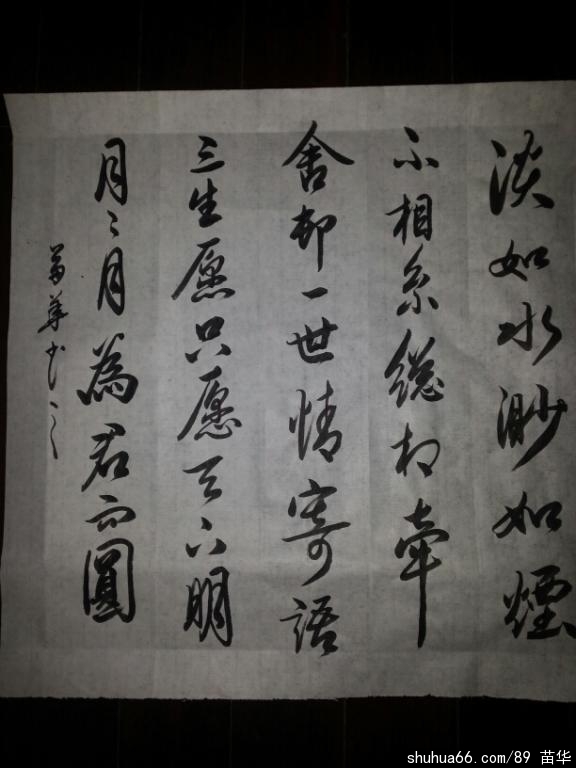 淡如水渺如煙
不相系總相牽
舍却一世情寄語
三生愿只愿天下明
月〻月為君而圓
苗華书之
shuhua66.com/89 苗华